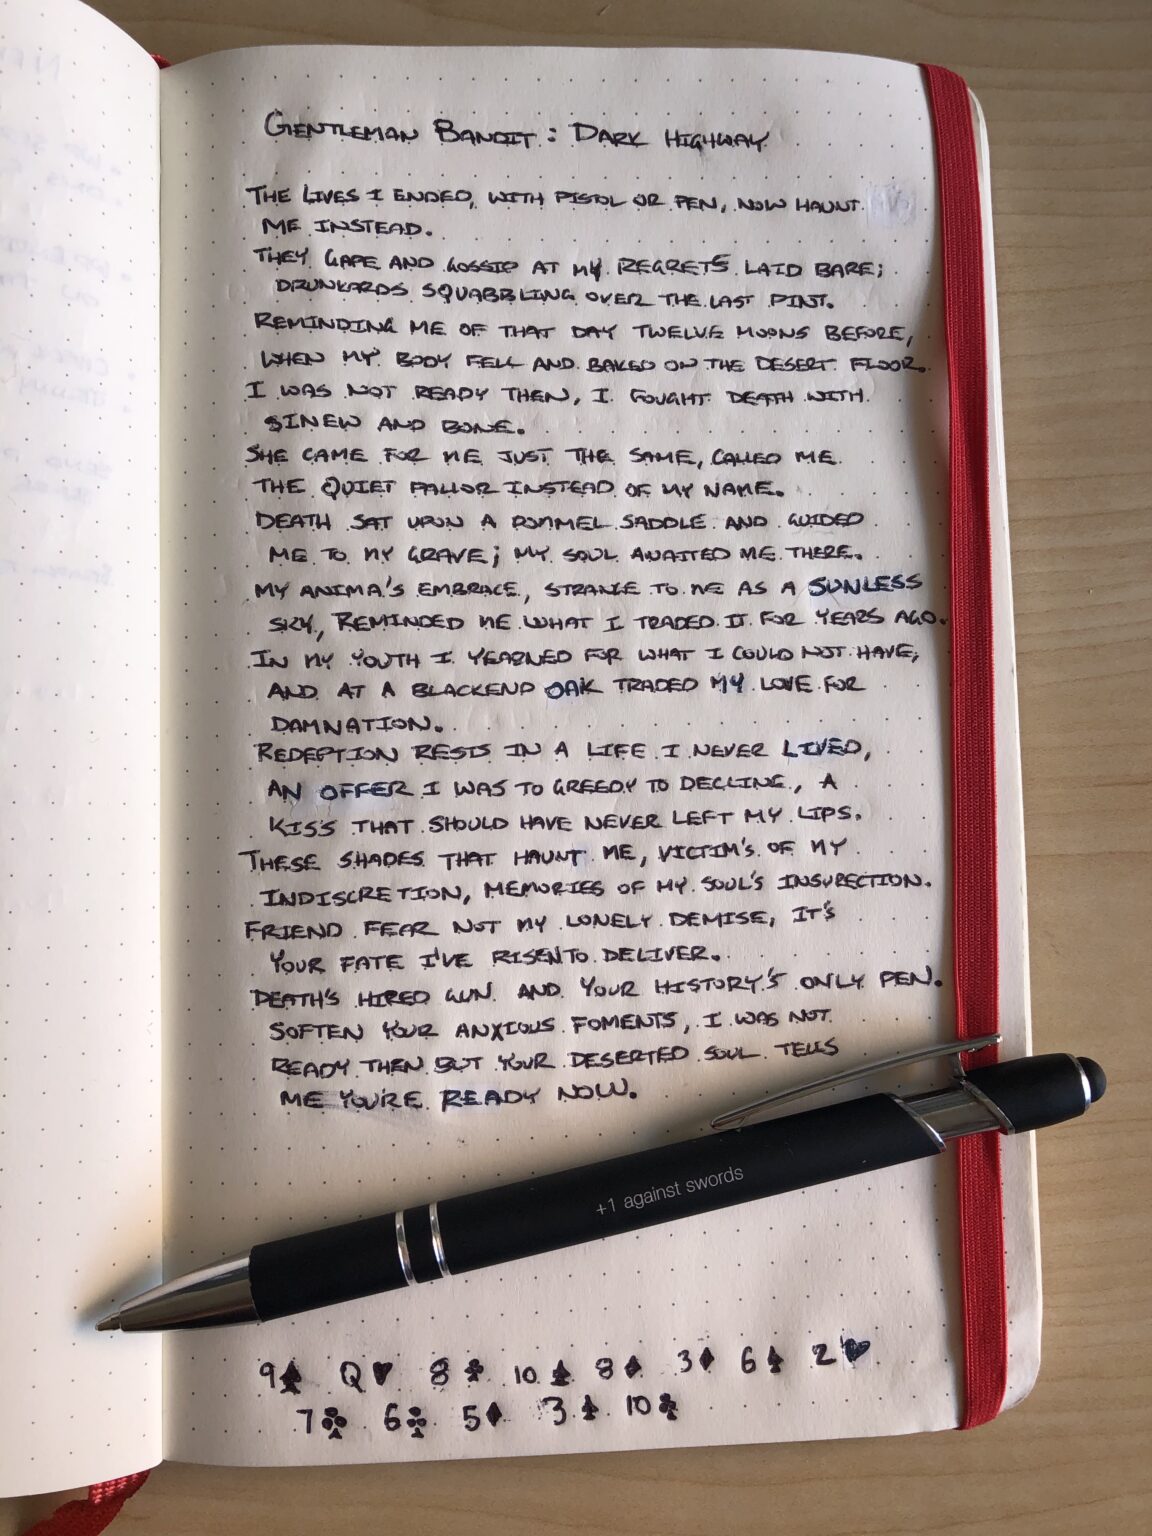 GENTLEMAN BANDIT: DARK HIGHWAY
THE LIVES I ENDED, WITH PISTOL OR PEN, NOW HAUNT
ME INSTEAD.
THEY GAPE AND GOSSIP AT MY REGRETS LAID BARE;
DRUNKARDS SQUABBLING OVER THE LAST PINT.
REMINDING ME OF THAT DAY TWELVE MOONS BEFORE,
WHEN MY BODY FELL AND BAKED ON THE DESERT FLOOR.
I WAS NOT READY THEN, I FOUGHT DEATH WITH
SINEW AND BONE.
SHE CAME FOR ME JUST THE SAME, CALLED ME
THE QUIET PALLOR INSTEAD OF MY NAME.
DEATH SAT UPON A POMMEL SADDLE AND GUIDED
ME TO MY GRAVE; MY SOUL AWAITED ME THERE.
MY ANIMA'S EMBRACE, STRANGE TO ME AS A SUNLESS
SKY, REMINDED ME WHAT I TRADED IT FOR YEARS AGO.
IN MY YOUTH I YEARNED FOR WHAT I COULD NOT HAVE,
AND AT A BLACKEND OAK TRADED MY LOVE FOR
DAMNATION.
REDEPTION RESTS IN A LIFE I NEVER LIVED,
AN OFFER I WAS TO GREEDY TO DECLINE, A
KISS THAT SHOULD HAVE NEVER LEFT MY LIPS.
THESE SHADES THAT HAUNT ME, VICTIM'S OF MY
INDISCRETION, MEMORIES OF MY SOUL'S INSURECTION.
FRIEND FEAR NOT MY LONELY DEMISE, IT'S
YOUR FATE I'VE RISEN TO DELIVER.
DEATH'S HIRED GUN AND YOUR HISTORY'S ONLY PEN.
SOFTEN YOUR ANXIOUS FOMENTS, I WAS NOT
READY THEN BUT YOUR DESERTED SOUL TELLS
ME YOU'RE READY NOW.
+1 against swords
9♠ Q♥ 8♣ 10♠ 8♦ 3♦ 6♠ 2♥
7♣ 6♣ 5♦ 3♠ 10♣